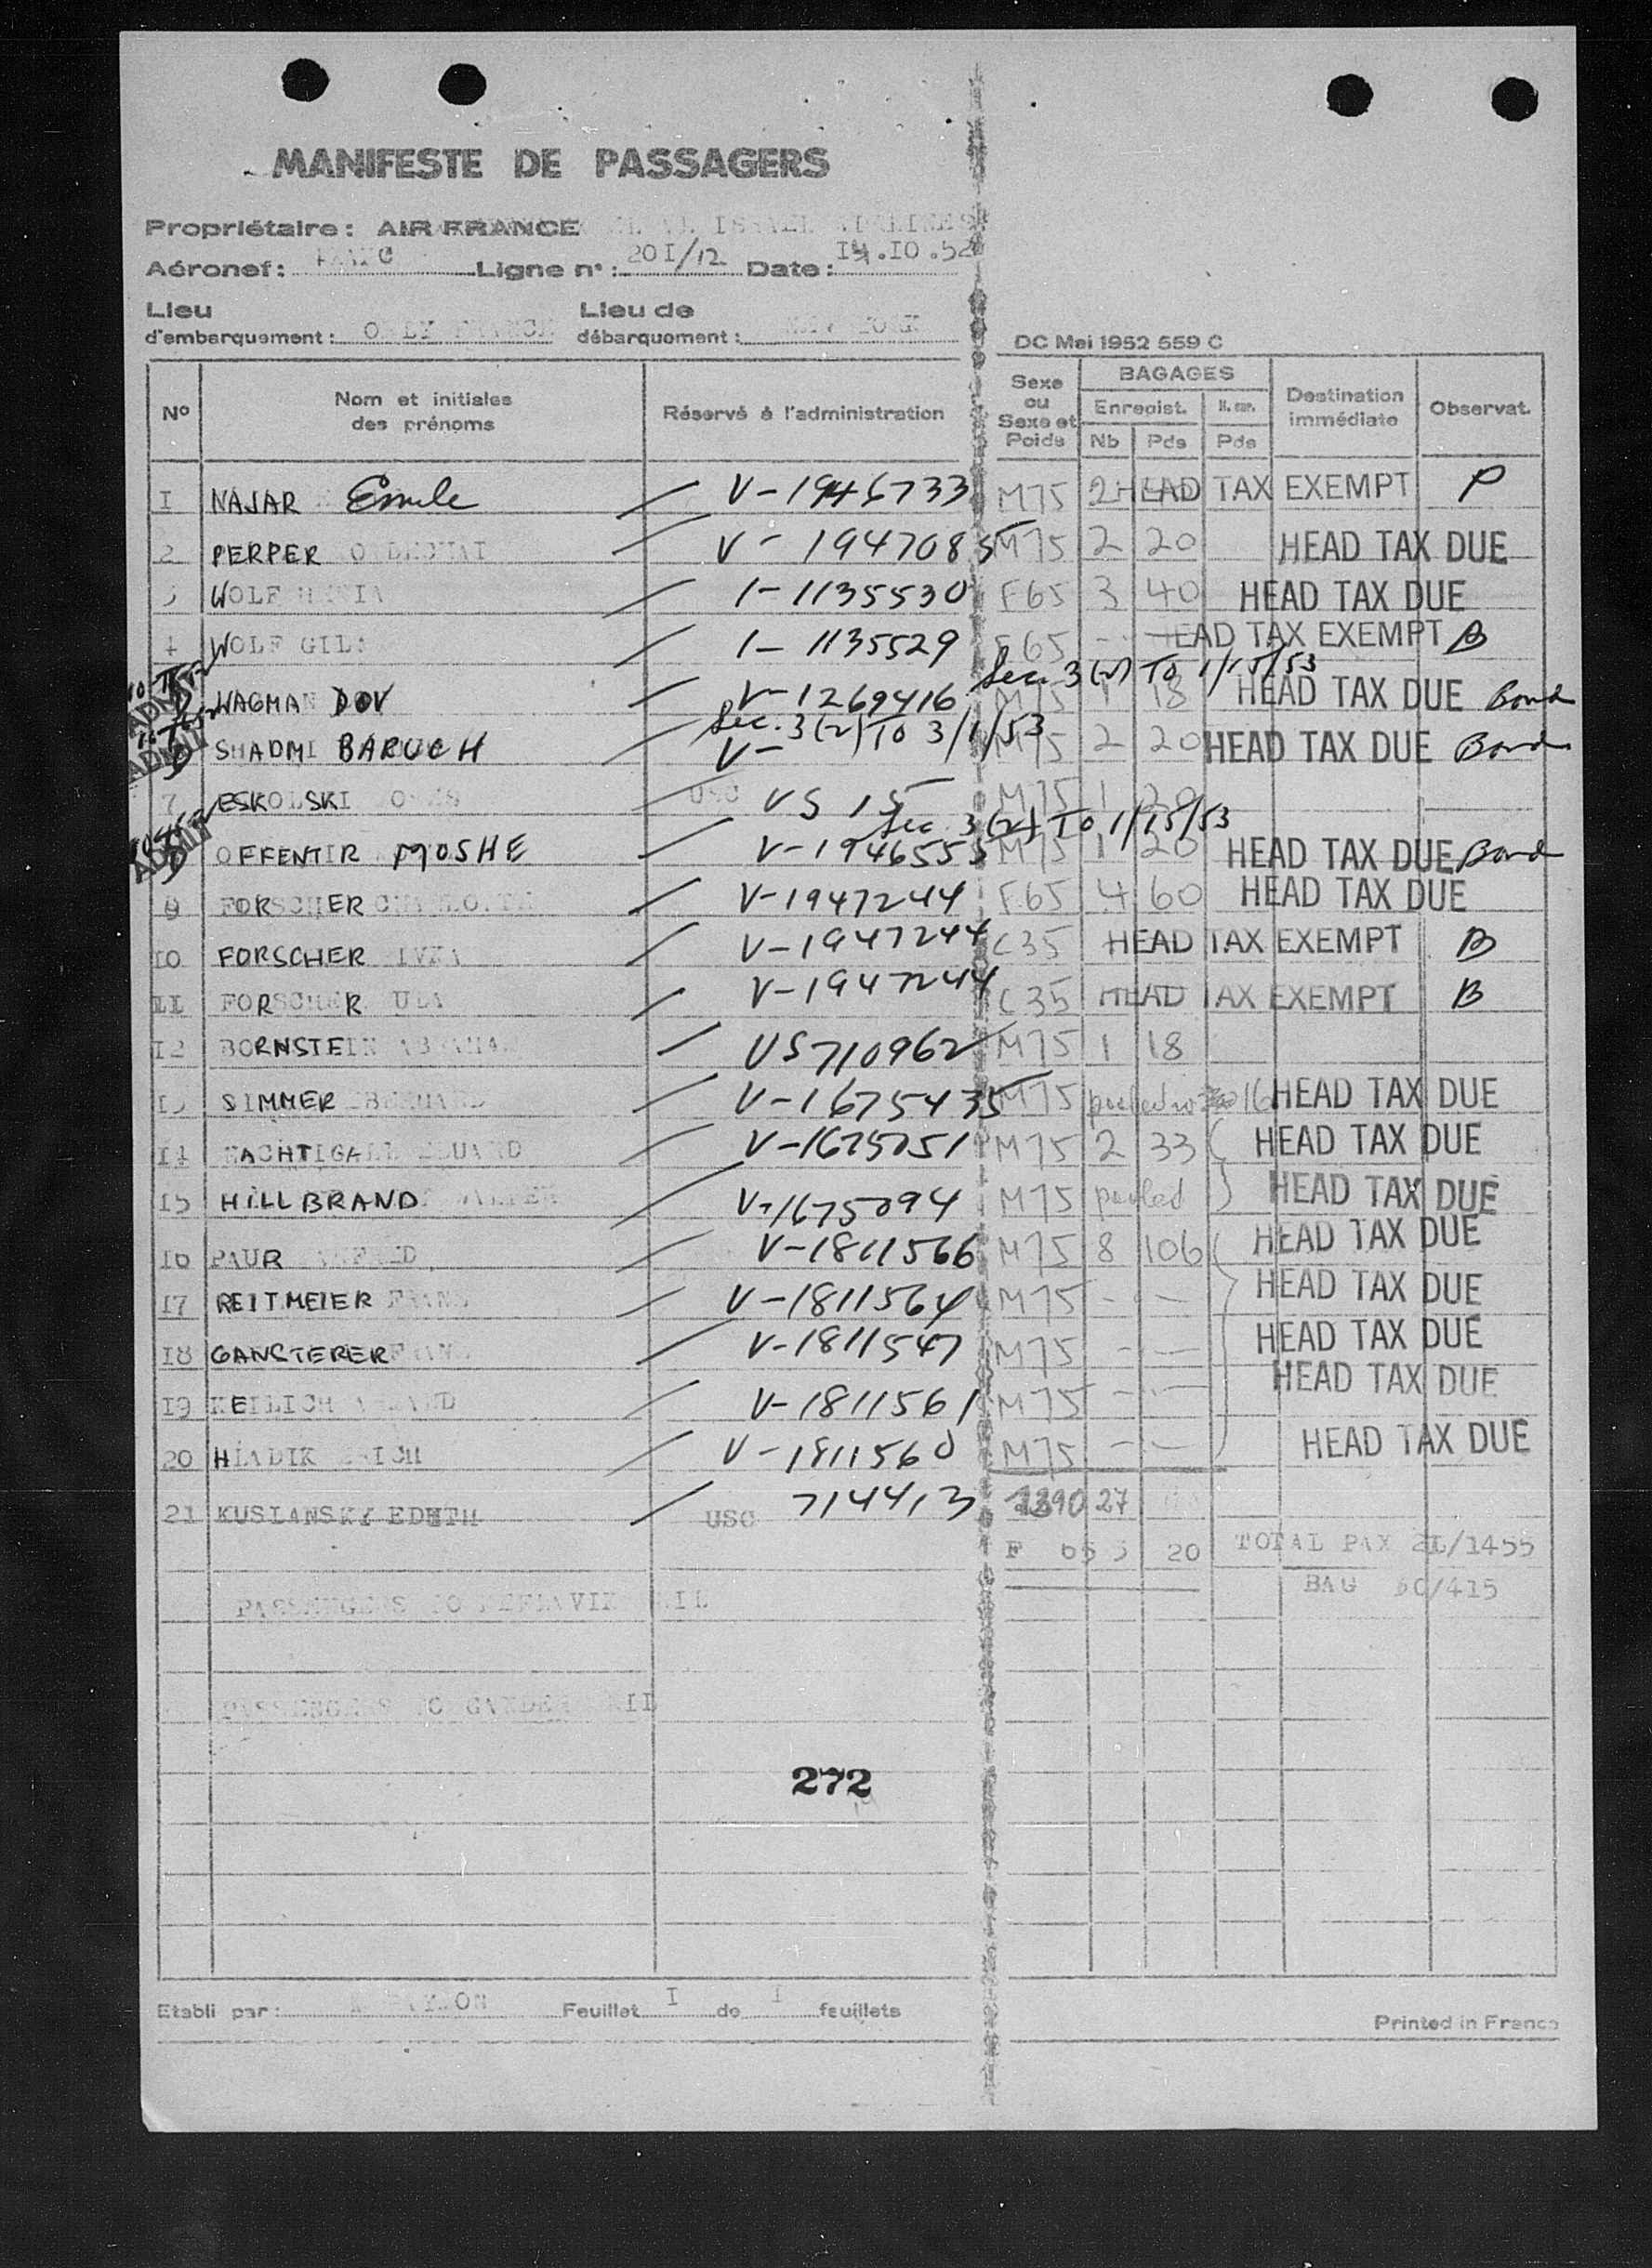 MANIFESTE DE PASSAGERS
Propriétaire : AIR FRANCE EL AL ISRAEL AIRLINES
Aéronef : Ligne n° : 201/12 Date : 14.10.52
Lieu d'embarquement : ORLY FRANCE Lieu de débarquement : NEW YORK
DC Mei 1952 559 C
N° Nom et initiales des prénoms Réservé à l'administration Sexe ou Sexe et Poids BAGAGES Enregist. Nb Pds Pds Destination immédiate Observat.
1 NAJAR Emile V-1946733 M75 2 HEAD TAX EXEMPT P
2 PERPER MORDECHAI V-1947085 M75 2 20 HEAD TAX DUE
3 WOLF I-1135530 F65 3 40 HEAD TAX DUE
4 WOLF GILA I-1135529 F65 - - HEAD TAX EXEMPT B
Sec. 3(2) TO 1/15/53
ADMIT WAGMAN DOV V-1269416 M75 1 18 HEAD TAX DUE Bond
Sec. 3(2) TO 3/1/53
ADMIT SHADMI BARUCH V- M75 2 20 HEAD TAX DUE Bond
7 ESKOLSKI USC US 15 M75 1 20
Sec. 3(2) TO 1/15/53
ADMIT OFFENTIR MOSHE V-1946555 M75 1 20 HEAD TAX DUE Bond
9 FORSCHER V-1947244 F65 4 60 HEAD TAX DUE
10 FORSCHER V-1947244 C35 HEAD TAX EXEMPT B
11 FORSCHER V-1947244 C35 HEAD TAX EXEMPT B
12 BORNSTEIN ABRAHAM US710962 M75 1 18
13 SIMMER V-1675435 M75 16 HEAD TAX DUE
14 NACHTIGALL EDUARD V-1675051 M75 2 33 HEAD TAX DUE
15 HILLBRAND WALTER V-1675094 M75 pooled HEAD TAX DUE
16 PAUR V-1811566 M75 8 106 HEAD TAX DUE
17 REITMEIER FRANZ V-1811564 M75 - - HEAD TAX DUE
18 GANSTERER FRANZ V-1811547 M75 - - HEAD TAX DUE
19 KEILICH V-1811561 M75 - - HEAD TAX DUE
20 HLADIK ERICH V-1811560 M75 - - HEAD TAX DUE
21 KUSLANSKY EDITH USC 714413 1390 27
F 65 3 20 TOTAL PAX 21/1455
BAG 30/415
PASSENGERS TO KEFLAVIK NIL
PASSENGERS TO GANDER NIL
272
Etabli par : Feuillet I de I feuillets
Printed in France